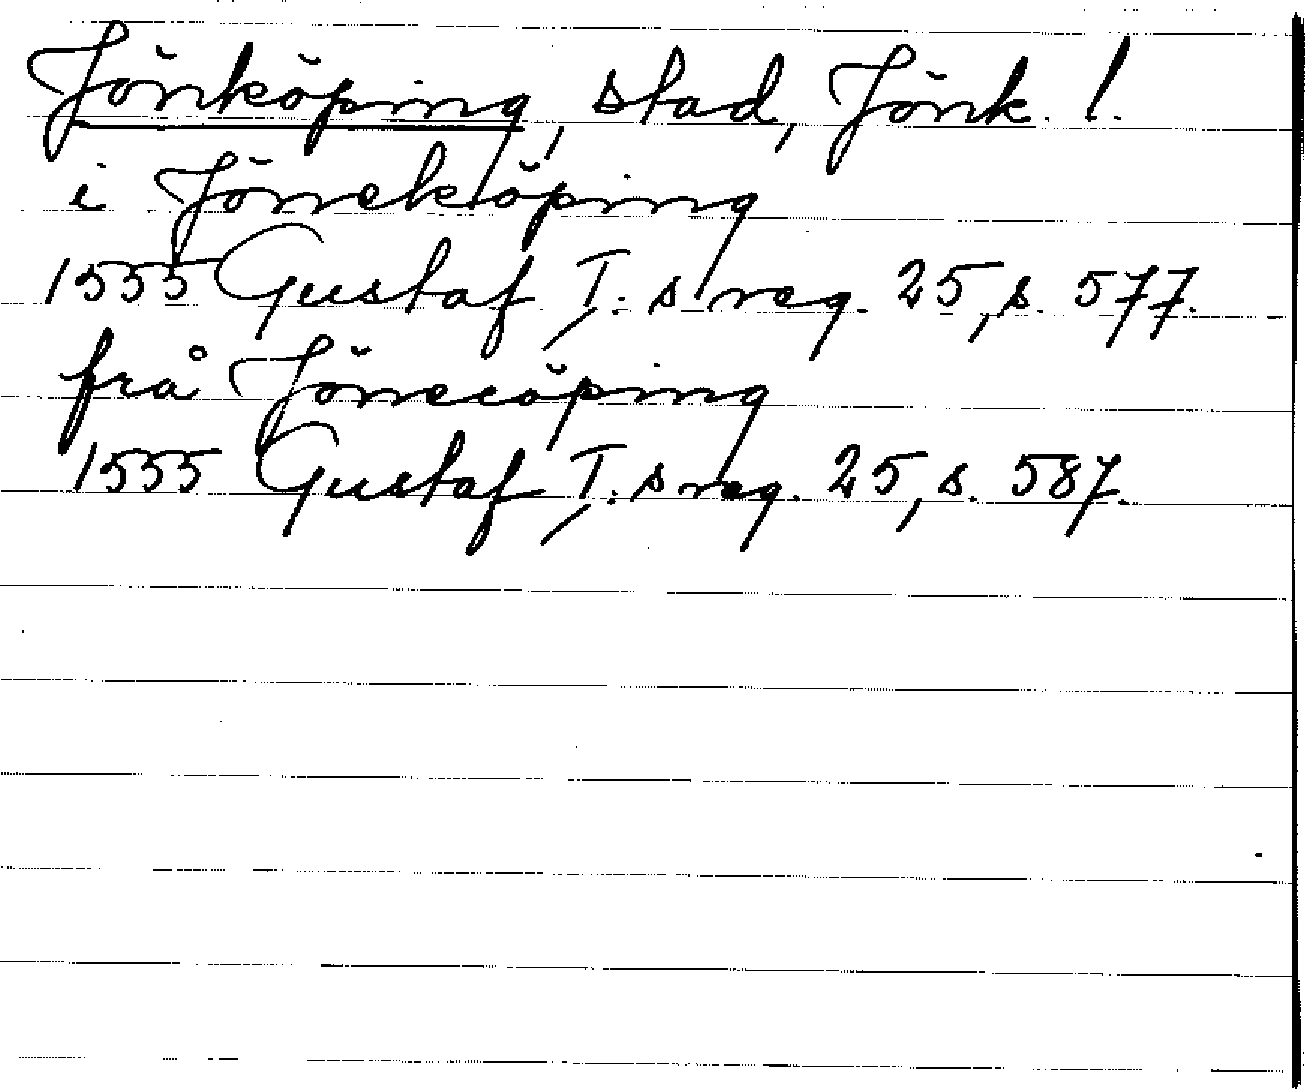 Jönköping, stad, Jönk. l.
i Jöneköping
1555 Gustaf I:s reg. 25, s. 577.
från Jönecöping
1555 Gustaf I:s reg. 25, s. 587.